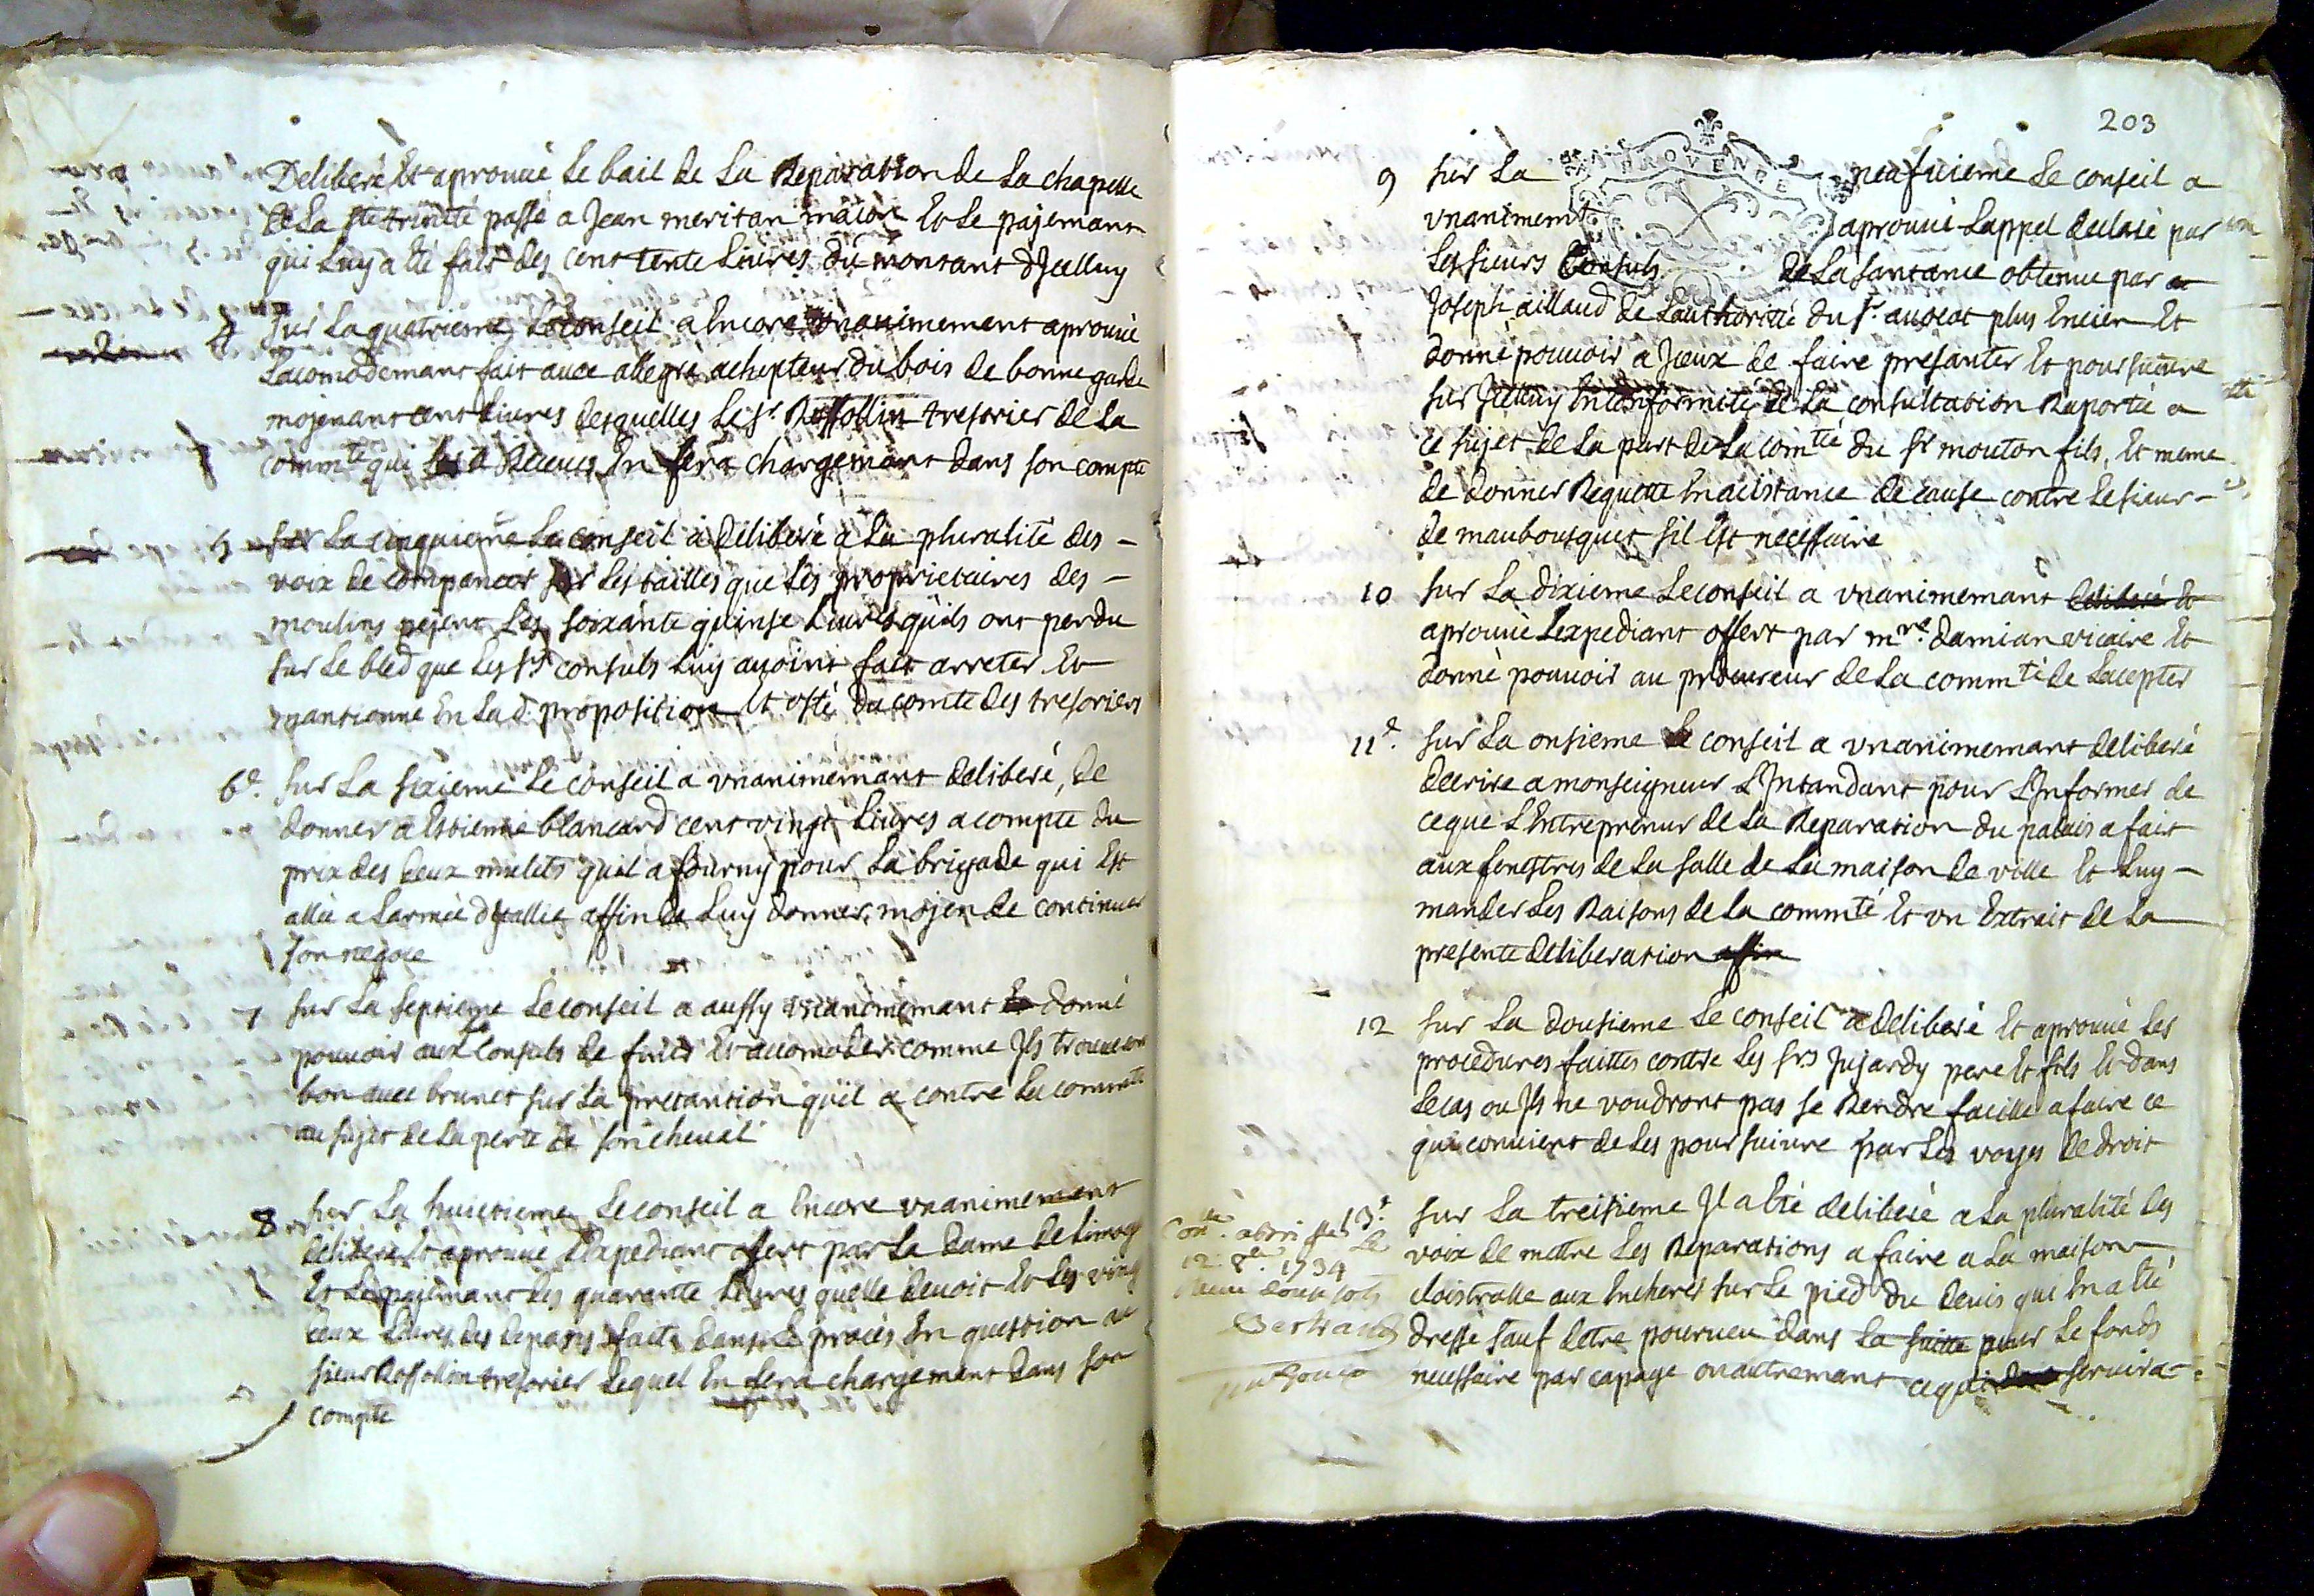 Deliberé Et aprouué Le bail de La Reparation de La chapelle
de La ste trinitté passé a Jean meritan maçon Et Le pajemant
qui Luy a été fait des cent trente Liures du montant d'Jcelluy
4 sur La quatrieme Le conseil a Encore vnanimement aprouué
L'acomodemant fait auec allegre achepteur du bois de bonne garde
mojenant cent Liures desquelles Le sr. Rossollin tresorier de La
commté qui Les a Receues En fera chargemant dans son compte
5 sur La cinquieme Le conseil a deliberé a La pluralité des
voix de compancer sur Les tailles que Les proprietaires des
moulins pejent Les soixante quinse Liures qu'ils ont perdu
sur Le bled que Les srs consuls Luy auoint fait arreter Et
mantionné En La d. proposition Et osté du comte des tresoriers
6e. sur La sixieme Le conseil a vnanimemant deliberé, de
donner a Estienne blancard cent vingt Liures a compte du
prix des deux mulets qu'il a fourny pour La brigade qui Est
allée a Larmée d'ytallie affin de Luy donner mojen de continuer
son negoce
7 sur La septieme Le conseil a aussy vnanimemant donné
pouuoir aux Consuls de finir Et accomoder comme Jls trouueront
bon auec brunet sur La pretantion qu'il a contre La commté
au sujet de La perte de son cheual
8 sur La huictieme Le conseil a Encore vnanimement
deliberé Et aprouué L'Expediant ofert par La dame de Limoge
Et Le pajemant des quarante Liures qu'elle deuoit Et Les vingt
deux Liures des depans faits dans Le procès En question au
sieur Rossollin tresorier Lequel En fera chargement dans son
compte
203
PROVENCE
9 sur La neufuieme Le conseil a
vnanimemt aprouué Lappel declaré par
Les sieurs Consuls de La santance obtenue par
Joseph aillaud de Lauthoritté du sr. auocat plus Encien Et
donné pouuoir a Jceux de faire presanter Et poursuiure
sur Jcelluy En conformité de La consultation Raportée a
ce sujet de La part de La comté du sr mouton fils, Et meme
de donner Requette En acistance de cause contre Le sieur
de maubousquet s'il Est necessaire
10 sur La dixieme Le conseil a vnanimemant deliberé Et
aprouué L'expediant offert par mre. damian vicaire Et
donné pouuoir au procureur de La commté de L'acepter
11e. sur La onsieme Le conseil a vnanimemant deliberé
decrire a monseigneur L'Jntandant pour L'Jnformer de
ce que L'Entreprenur de La Reparation du palais a fait
aux fenestres de La salle de La maison de ville Et Luy
mander Les Raisons de La commté Et vn Extrait de La
presente deliberation affin
12 sur La dousieme Le conseil a deliberé Et aprouué Les
procedures faittes contre Les srs Jujardy pere Et fils Et dans
Le cas ou Jls ne voudront pas se Rendre facille a faire ce
qui conuient de Les poursuiure par Les voyes de droit
13e. sur La treisieme Jl a Eté deliberé a La pluralité des
voix de mettre Les Reparations a faire a La maison
cloistralle aux Encheres sur Le pied du deuis qui En a Eté
dressé sauf detre pourueu dans La suitte pour Le fonds
necessaire par capage ou autremant ce qui seruira
12. 8e. 1734
Bertrand